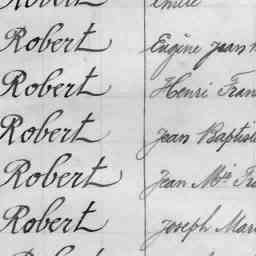 Robert Emile
Robert Eugène Jean
Robert Henri Fran
Robert Jean Baptiste
Robert Jean Mie Fra
Robert Joseph Mar